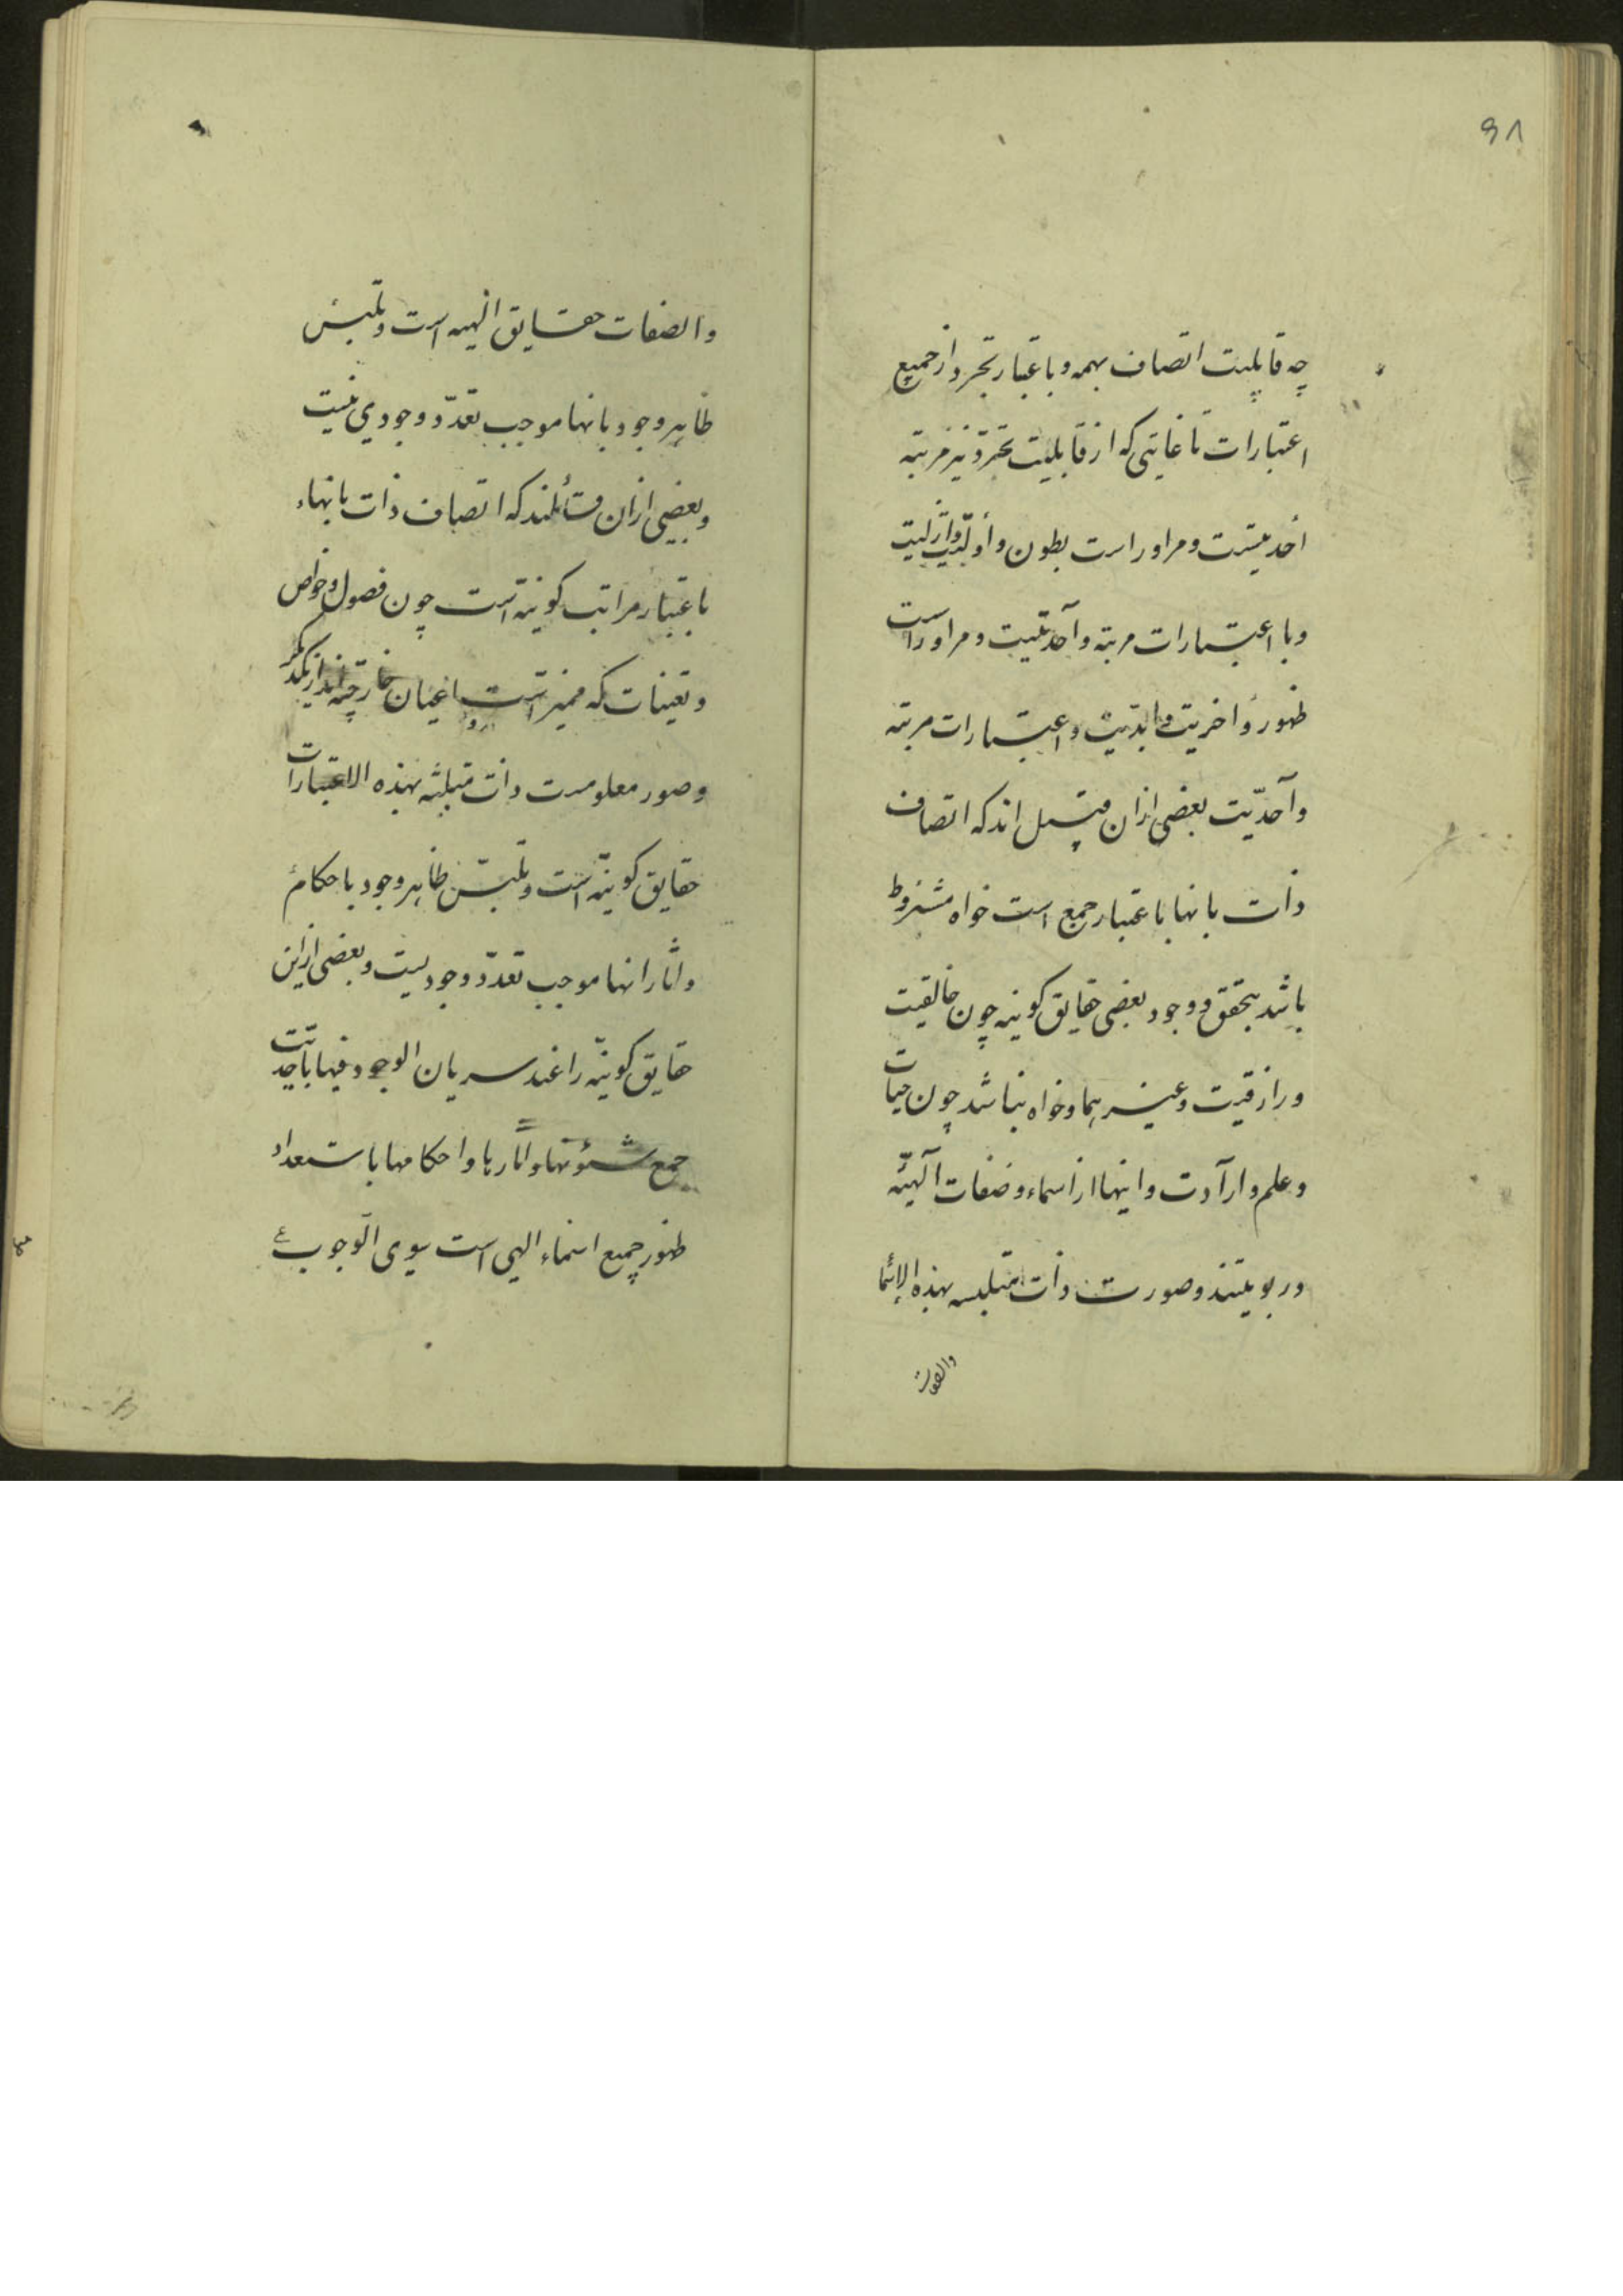 ۹۸
چه قابلیت اتصاف بهمه و باعتبار تجرد از جمیع
اعتبارات تا غایتی که از قابلیت تجرد نیز مرتبه
احدیتست و مر او راست بطون و اولیت و ازلیت
و با اعتبارات مرتبه واحدیت و مر او راست
ظهور و اخریت و ابدیت و اعتبارات مرتبه
واحدیت بعضی ازان قبیل اند که اتصاف
ذات بانها باعتبار جمع است خواه مشروط
باشد بتحقق و وجود بعضی حقایق کونیه چون خالقیت
و رازقیت و غیرهما و خواه نباشد چون حیات
و علم و ارادت و اینها از اسماء و صفات آلهیّه
و ربوبیتند و صورت ذات متلبسه بهذه الاسما
والصفات
والصفات حقایق الهیه است و تلبس
ظاهر وجود بانها موجب تعدّد وجودی نیست
و بعضی ازان قبیلند که اتصاف ذات بانهاء
باعتبار مراتب کونیّه است چون فصول و خواص
و تعینات که ممیز است اعیان خارجیه اند از یکدیگر
و صور معلومیت ذات متلبسه بهذه الاعتبارات
حقایق کونیّه است و تلبّس ظاهر وجود باحکام
و اثار انها موجب تعدّد وجودیست و بعضی ازاین
حقایق کونیّه را عند سریان الوجود فیها باحدیّت
جمع شئونها و اثارها و احکامها با استعداد
ظهور جمیع اسماء الهی است سوی الوجوب